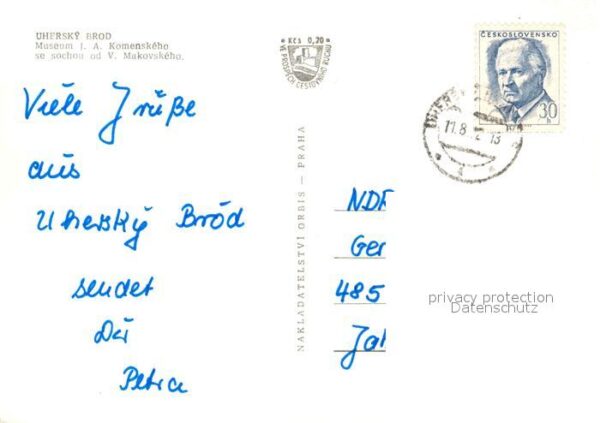 UHERSKÝ BROD
Museum J. A. Komenského
se sochou od V. Makovského.
Kčs 0,20
VE PROSPĚCH CESTOVNÍHO RUCHU
ČESKOSLOVENSKO
30
h
11.8 13
Viele Grüße
aus
Uherský Bród
sendet
Dir
Petra
NAKLADATELSTVÍ ORBIS – PRAHA
NDR
Ger
485
privacy protection
Datenschutz